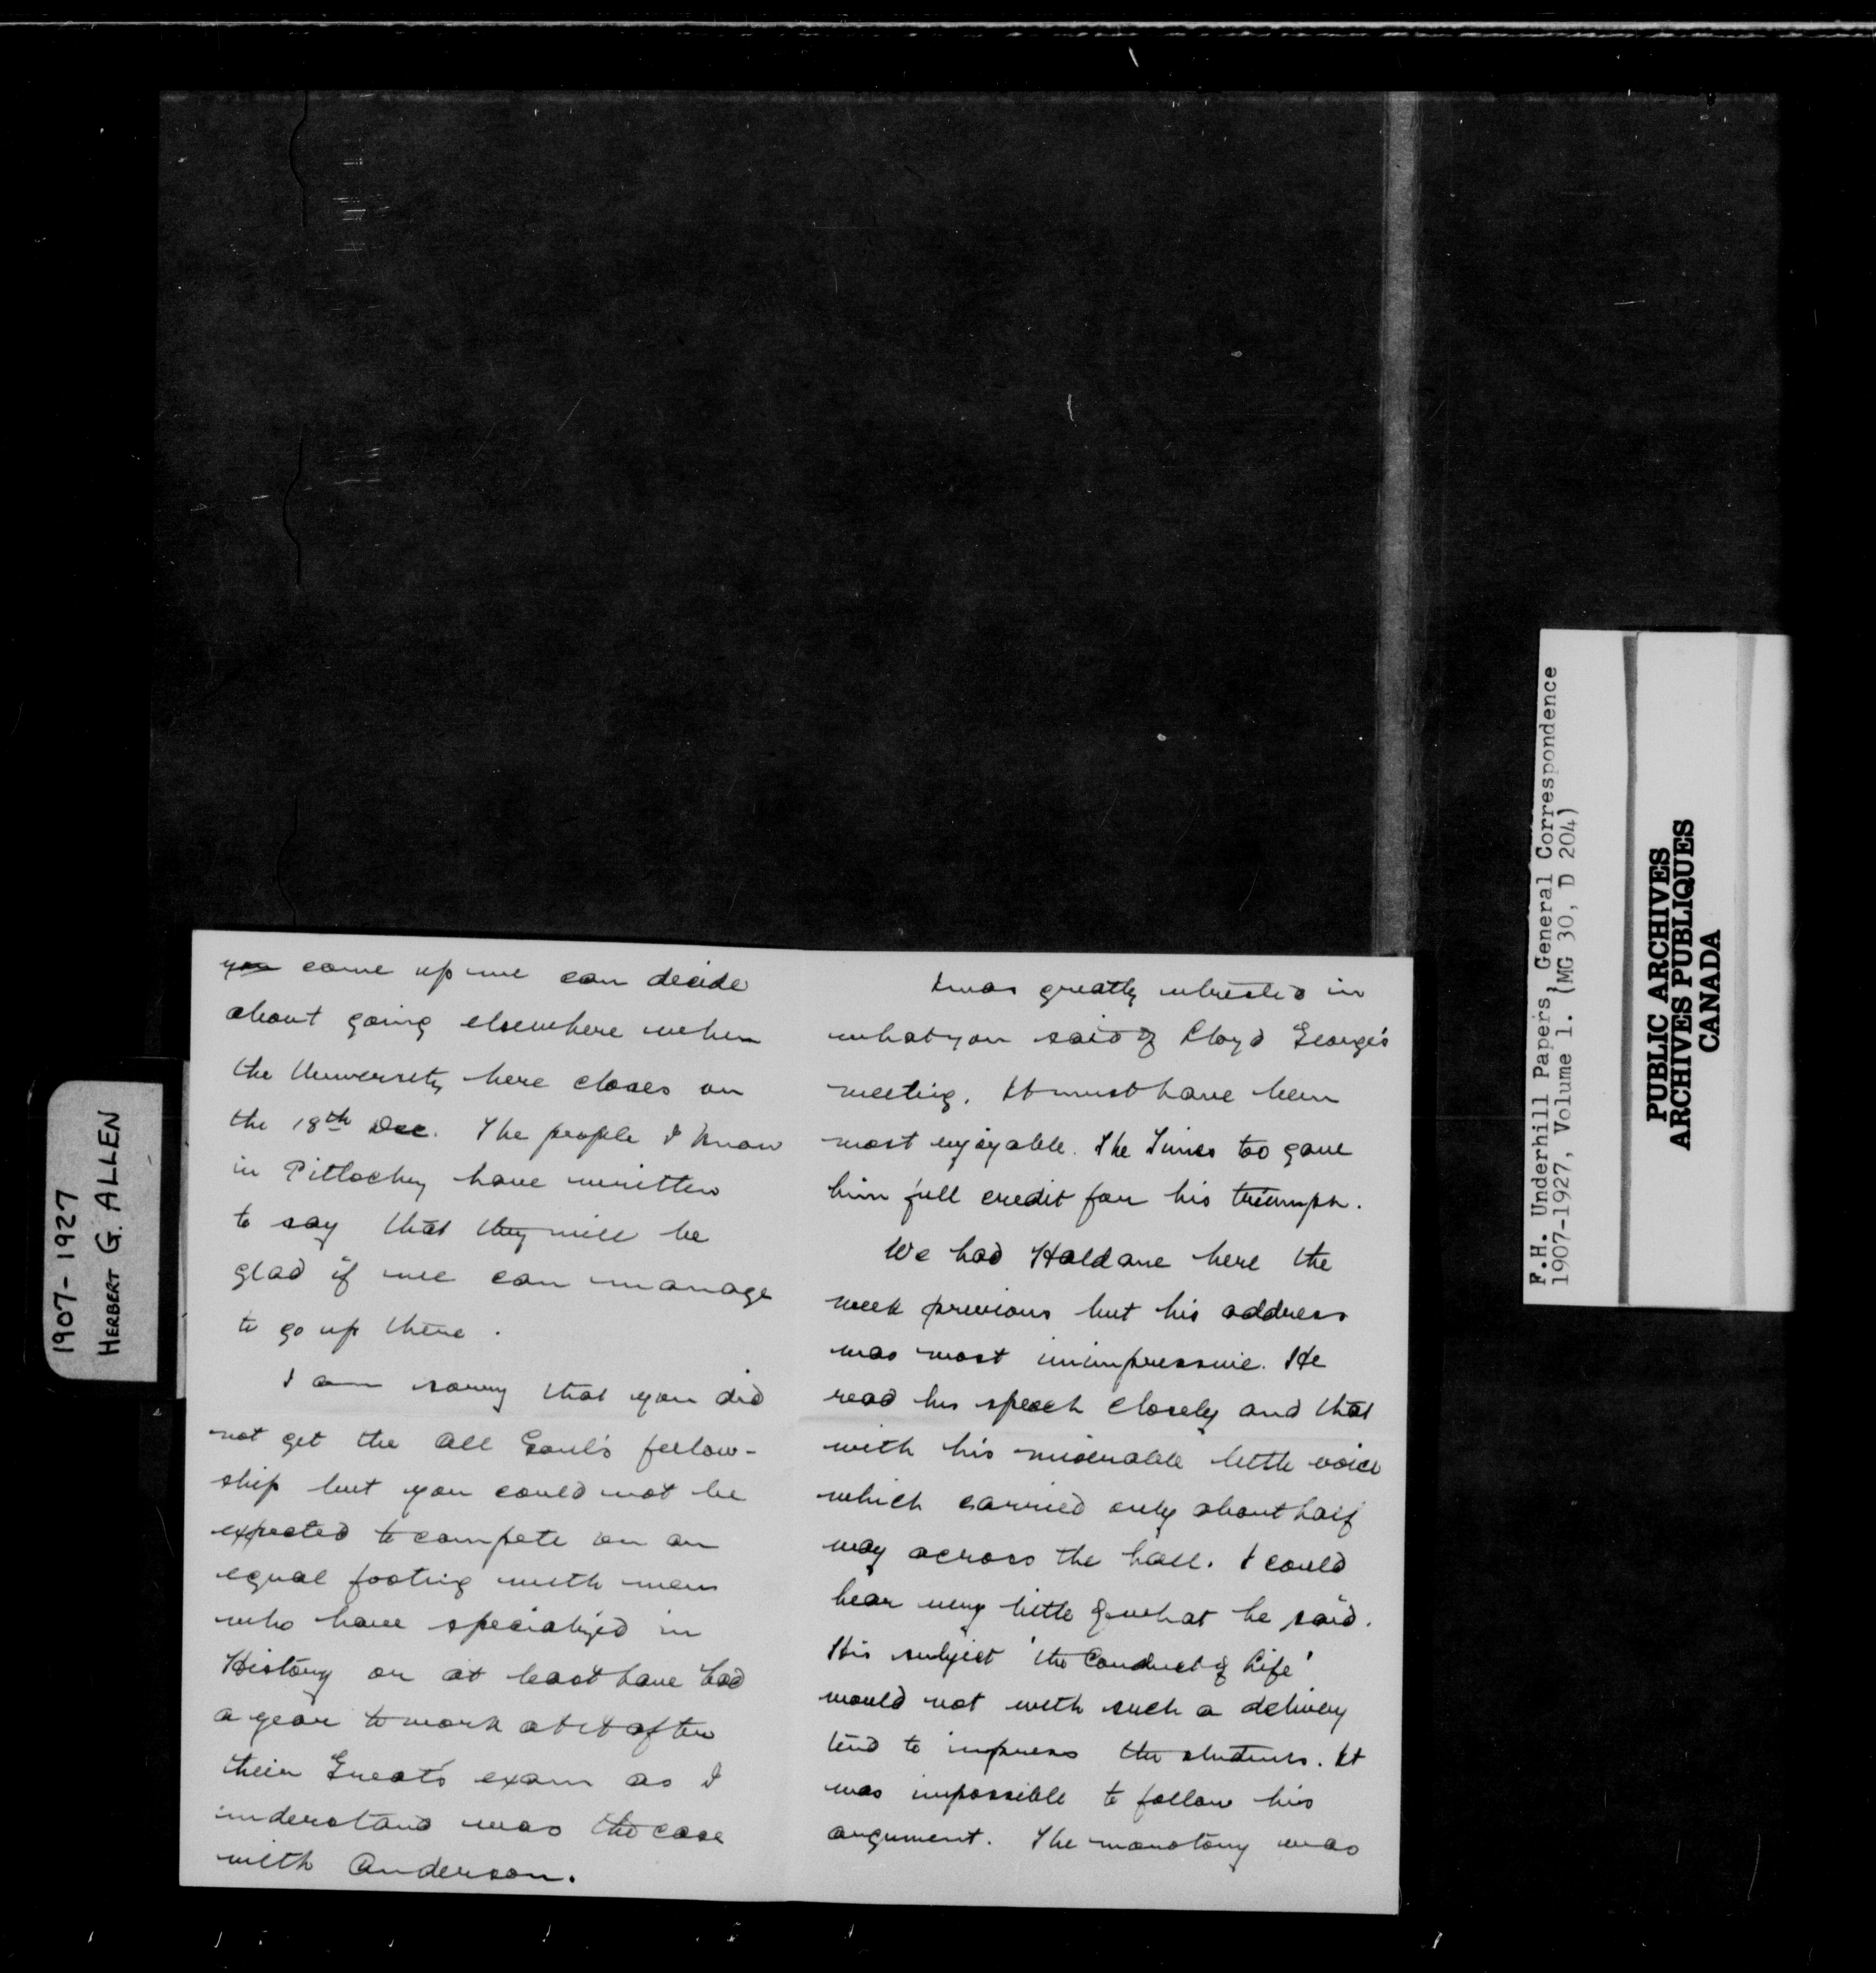 you come up we can decide
about going elsewhere when
the University here closes on
the 18th Dec. The people I know
in Pitlochry have written
to say that they will be
glad if we can manage
to go up there.
I am sorry that you did
not get the All Soul's fellow-
ship but you could not be
expected to compete on an
equal footing with men
who have specialized in
History or at least have had
a year to work at it after
their Greats exam as I
understand was the case
with Anderson.
I was greatly interested in
what you said of Lloyd George's
meeting. It must have been
most enjoyable. The Times too gave
him full credit for his triumph.
We had Haldane here the
week previous but his address
was most unimpressive. He
read his speech closely and that
with his miserable little voice
which carried only about half
way across the hall. I could
hear very little of what he said.
His subject 'the Conduct of Life'
would not with such a delivery
tend to impress the students. It
was impossible to follow his
argument. The monotony was
1907-1927
HERBERT G. ALLEN
F.H. Underhill Papers, General Correspondence
1907-1927, Volume 1. (MG 30, D 204)
PUBLIC ARCHIVES
ARCHIVES PUBLIQUES
CANADA